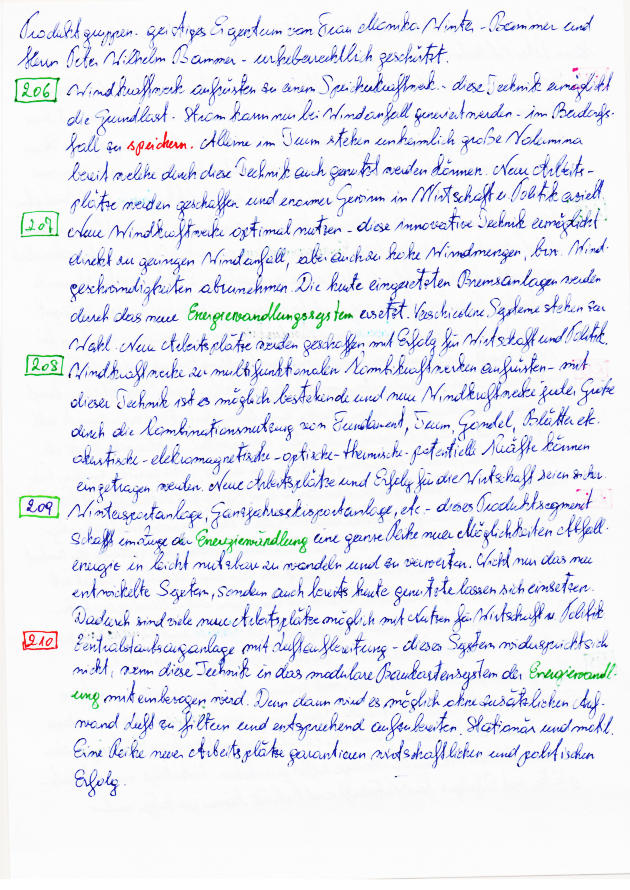 Produktgruppen - geistiges Eigentum von Frau Monika Winter-Bammer und
Herrn Peter Wilhelm Bammer - urheberrechtlich geschützt.
206 Windkraftwerk aufrüsten zu einem Speicherkraftwerk - diese Technik ermöglicht
die Grundlast - Strom kann nur bei Windanfall generiert werden - im Bedarfs-
fall zu speichern. Alleine im Turm stehen unheimlich große Volumina
bereit welche durch diese Technik auch genutzt werden können. Neue Arbeits-
plätze werden geschaffen und enormer Gewinn in Wirtschaft u Politik erzielt.
207 Neue Windkraftwerke optimal nutzen - diese innovative Technik ermöglicht
direkt zu geringen Windanfall, aber auch zu hohe Windmengen, bzw. Wind-
geschwindigkeiten abzunehmen. Die heute eingesetzten Bremsanlagen werden
durch das neue Energiewandlungssystem ersetzt. Verschiedene Systeme stehen zur
Wahl. Neue Arbeitsplätze werden geschaffen mit Erfolg für Wirtschaft und Politik.
208 Windkraftwerke zu multifunktionalen Kombikraftwerken aufrüsten - mit
dieser Technik ist es möglich bestehende und neue Windkraftwerke jeder Größe
durch die Kombinationsnutzung von Fundament, Turm, Gondel, Blätter etc.
akustische - elektromagnetische - optische - thermische - potentielle Kräfte können
eingetragen werden. Neue Arbeitsplätze und Erfolg für die Wirtschaft seien sicher.
209 Wintersportanlage, Ganzjahresskisportanlage, etc - dieses Produktsegment
schafft im Zuge der Energiewandlung eine ganze Reihe neuer Möglichkeiten Abfall-
energie in leicht nutzbar zu wandeln und zu verwerten. Nicht nur das neu
entwickelte System, sondern auch bereits heute genutzte lassen sich einsetzen.
Dadurch sind viele neue Arbeitsplätze möglich mit Nutzen für Wirtschaft u Politik
210 Zentralstaubsauganlage mit Luftaufbereitung - dieses System widerspricht sich
nicht, wenn diese Technik in das modulare Baukastensystem der Energiewandl-
ung miteinbezogen wird. Denn dann wird es möglich ohne zusätzlichen Auf-
wand Luft zu filtern und entsprechend aufzubereiten. Stationär und mobil.
Eine Reihe neuer Arbeitsplätze garantieren wirtschaftlichen und politischen
Erfolg.